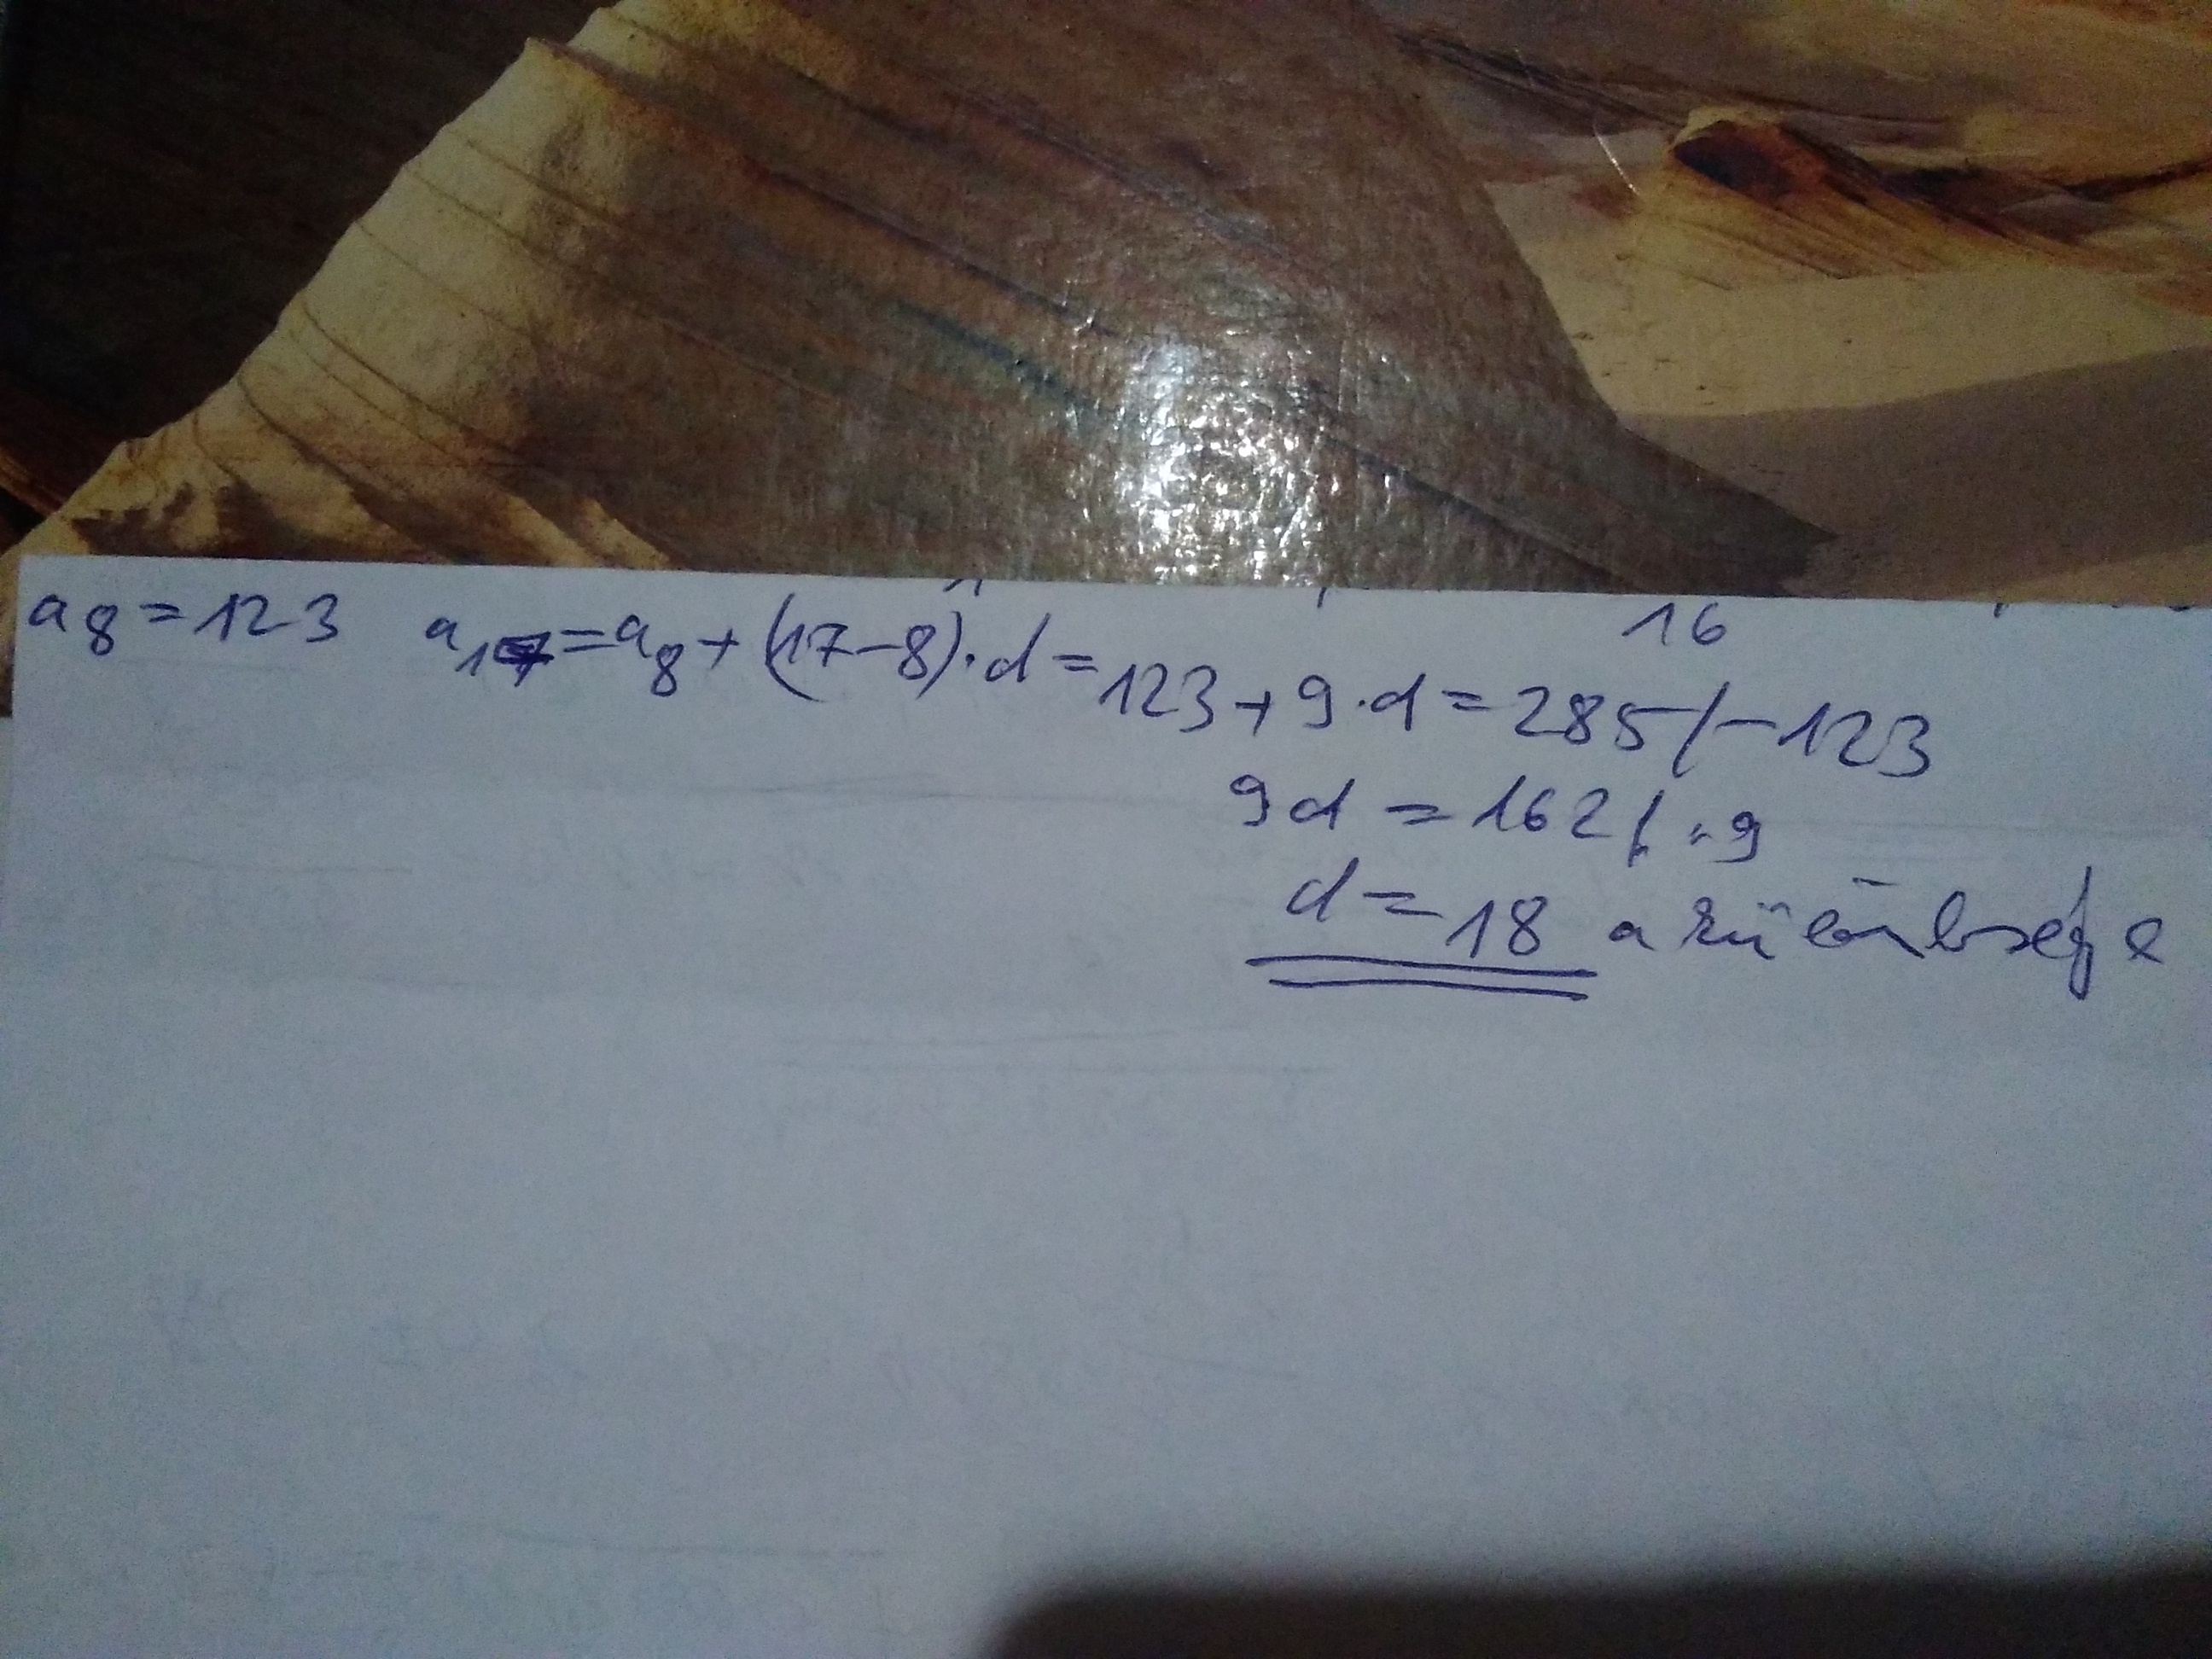 16
a8=123 a17=a8+(17-8)·d=123+9·d=285/-123
9d=162/:9
d=18 a különbsége